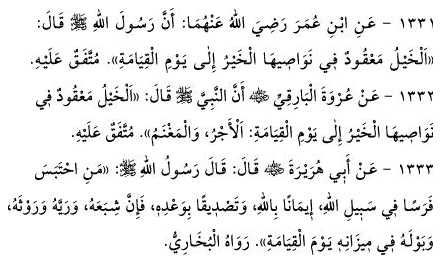 ١٣٣١ - عَنِ ابْنِ عُمَرَ رَضِيَ اللهُ عَنْهُمَا: أَنَّ رَسُولَ اللهِ ﷺ قَالَ:
«اَلْخَيْلُ مَعْقُودٌ فِي نَوَاصِيهَا الْخَيْرُ إِلَى يَوْمِ الْقِيَامَةِ». مُتَّفَقٌ عَلَيْهِ.
١٣٣٢ - عَنْ عُرْوَةَ الْبَارِقِيِّ ﷺ أَنَّ النَّبِيَّ ﷺ قَالَ: «اَلْخَيْلُ مَعْقُودٌ فِي
نَوَاصِيهَا الْخَيْرُ إِلَى يَوْمِ الْقِيَامَةِ: اَلْأَجْرُ، وَالْمَغْنَمُ». مُتَّفَقٌ عَلَيْهِ.
١٣٣٣ - عَنْ أَبِي هُرَيْرَةَ قَالَ: قَالَ رَسُولُ اللهِ ﷺ: «مَنِ احْتَبَسَ
فَرَسًا فِي سَبِيلِ اللهِ، إِيمَانًا بِاللهِ، وَتَصْدِيقًا بِوَعْدِهِ، فَإِنَّ شِبَعَهُ، وَرَيَّهُ وَرَوْثَهُ،
وَبَوْلَهُ فِي مِيزَانِهِ يَوْمَ الْقِيَامَةِ». رَوَاهُ الْبُخَارِيُّ.